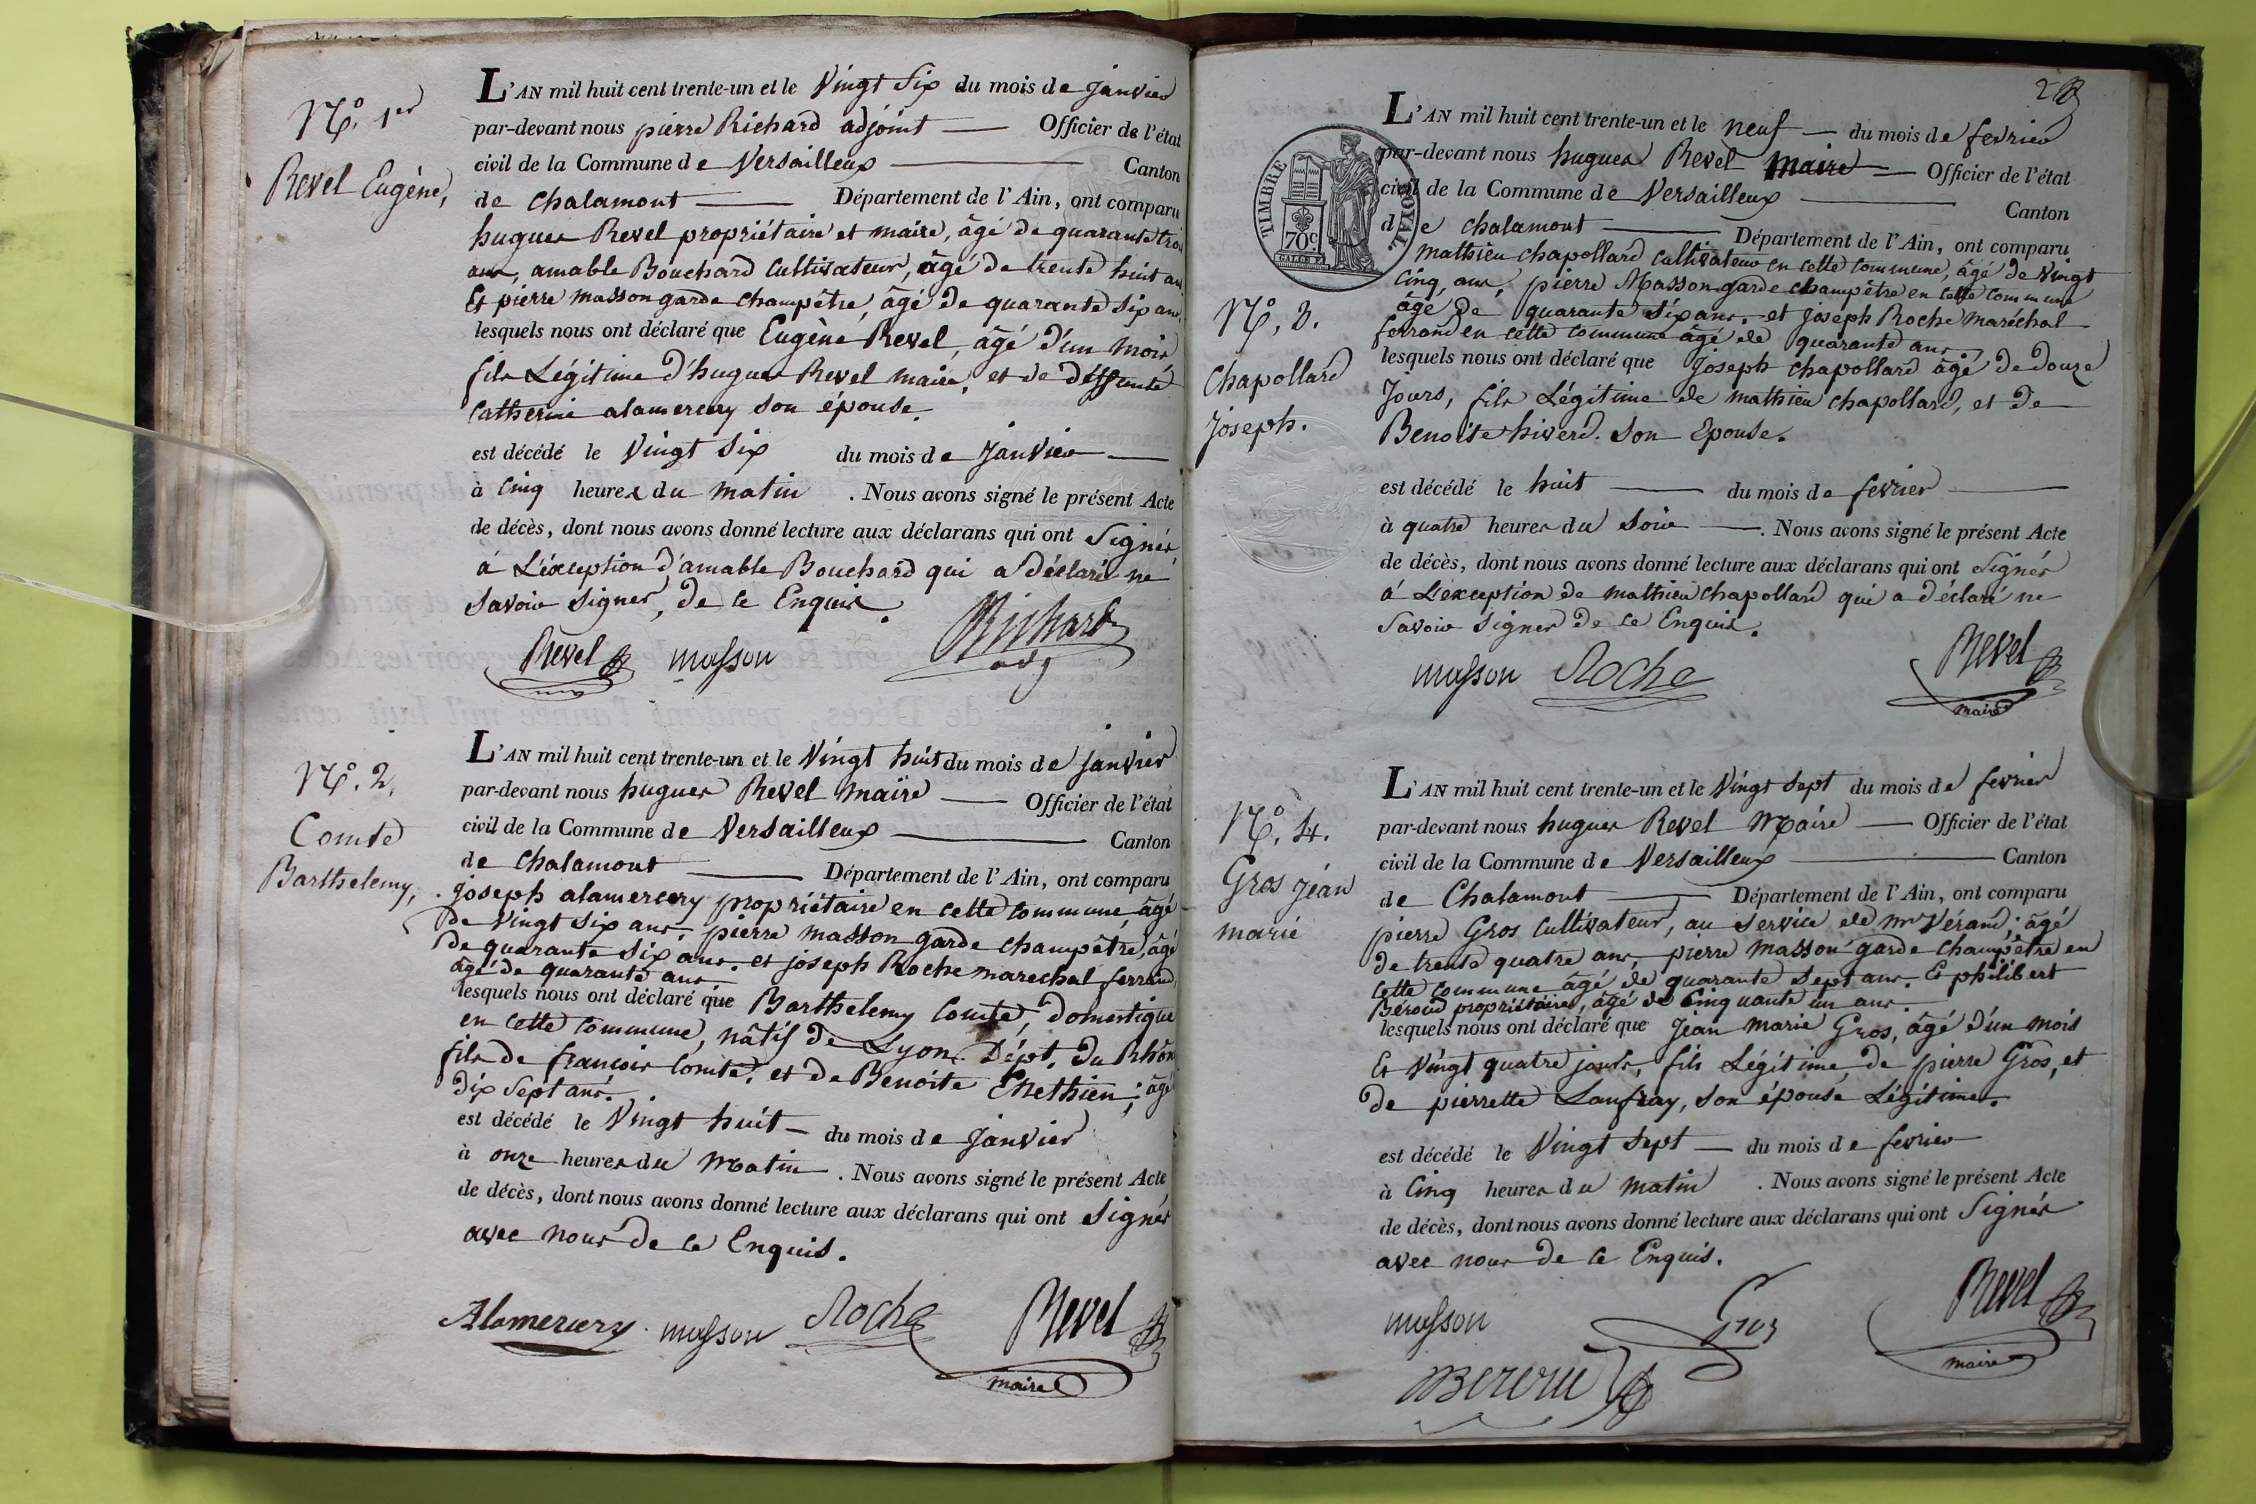 N.° 1er
Revel Eugène,
L'AN mil huit cent trente-un et le Vingt Six du mois de janvier
par-devant nous pierre Richard adjoint — Officier de l'état
civil de la Commune de Versailleux — Canton
de Chalamont — Département de l'Ain, ont comparu
hugues Revel propriétaire et maire, âgé de quarante trois
ans, amable Bouchard Cultivateur, âgé de trente huit ans
Et pierre masson garde champêtre, âgé de quarante six ans,
lesquels nous ont déclaré que Eugène Revel, âgé d'un mois
fils Légitime d'hugues Revel maire, et de deffunte
Catherine alamercery son épouse.
est décédé le Vingt Six du mois de Janvier —
à Cinq heures du matin . Nous avons signé le présent Acte
de décès, dont nous avons donné lecture aux déclarans qui ont Signés
à L'éxception d'amable Bouchard qui a déclaré ne
Savoir signer, de ce Enquis.
Revel masson Richard
adj
N.° 2,
Comte
Barthelemy,
L'AN mil huit cent trente-un et le Vingt huit du mois de janvier
par-devant nous hugues Revel maire — Officier de l'état
civil de la Commune de Versailleux — Canton
de Chalamont — Département de l'Ain, ont comparu
joseph alamercery propriétaire en cette commune âgé
de Vingt Six ans, pierre masson garde champêtre, âgé
de quarante six ans. et joseph Roche marechal ferrand,
âgé de quarante ans
lesquels nous ont déclaré que Barthelemy Comte, Domestique
en cette commune, nâtif de Lyon. Dépt. du Rhône
fils de francois Comte, et de Benoite Chethien; âgé
dix Sept ans.
est décédé le Vingt huit — du mois de Janvier
à onze heures du Matin . Nous avons signé le présent Acte
de décès, dont nous avons donné lecture aux déclarans qui ont Signés
avec nous de ce Enquis.
Alamercery masson Roche Revel
maire
2
TIMBRE ROYAL
70c
L'AN mil huit cent trente-un et le neuf — du mois de fevrier
par-devant nous hugues Revel Maire — Officier de l'état
civil de la Commune de Versailleux — Canton
de chalamont — Département de l'Ain, ont comparu
mathieu chapollard cultivateur en cette commune, âgé de Vingt
Cinq, ans, pierre Masson garde champêtre en cette commune
âgé de quarante Six ans. et Joseph Roche maréchal
ferrand en cette commune âgé de quarante ans
N.° 3.
Chapollard
Joseph.
lesquels nous ont déclaré que Joseph chapollard âgé de douze
Jours, fils Légitime de mathieu chapollard, et de
Benoite hiverd. Son Epouse.
est décédé le huit — du mois de fevrier —
à quatre heures du Soir —. Nous avons signé le présent Acte
de décès, dont nous avons donné lecture aux déclarans qui ont Signés
à L'éxception de mathieu chapollard qui a déclaré ne
Savoir Signer de ce Enquis.
masson Roche Revel
maire
N.° 4.
Gros jean
marie
L'AN mil huit cent trente-un et le Vingt sept du mois de fevrier
par-devant nous hugues Revel Maire — Officier de l'état
civil de la Commune de Versailleux — Canton
de Chalamont — Département de l'Ain, ont comparu
pierre Gros Cultivateur, au Service de Mr Vérand; âgé
de trente quatre ans, pierre masson garde champêtre en
cette commune âgé de quarante Sept ans. Et philibert
Béroud propriétaire, âgé de Cinquante un ans.
lesquels nous ont déclaré que Jean marie Gros, âgé d'un mois
Et Vingt quatre jours, fils Légitime, de pierre Gros, et
de pierrette Laufray, son épouse Légitime.
est décédé le Vingt sept — du mois de fevrier
à Cinq heures du matin . Nous avons signé le présent Acte
de décès, dont nous avons donné lecture aux déclarans qui ont Signés
avec nous de ce Enquis.
masson Gros Revel
maire